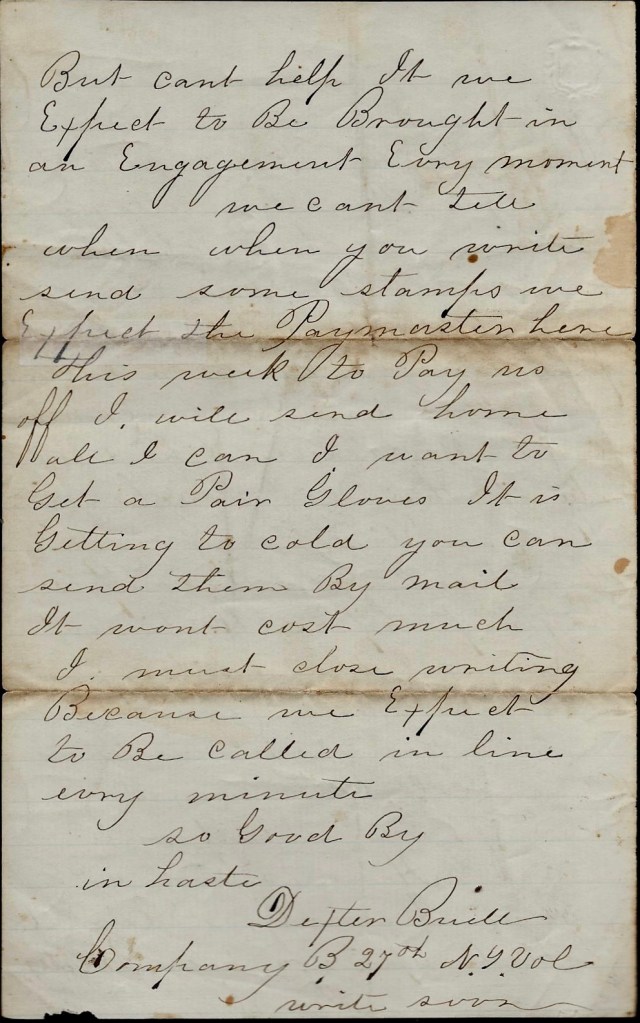 But cant help It we
Expect to Be Brought in
an Engagement Evry moment
we cant tell
when when you write
send some stamps we
Expect the Paymaster here
this week to Pay us
off I. will send home
all I can I want to
Get a Pair Gloves It is
Getting to cold you can
send them By mail
It wont cost much
I. must close writing
Because we Expect
to Be called in line
evry minute
so Good By
in haste
Dexter Buell
Company B 27th N.Y. Vol
write soon